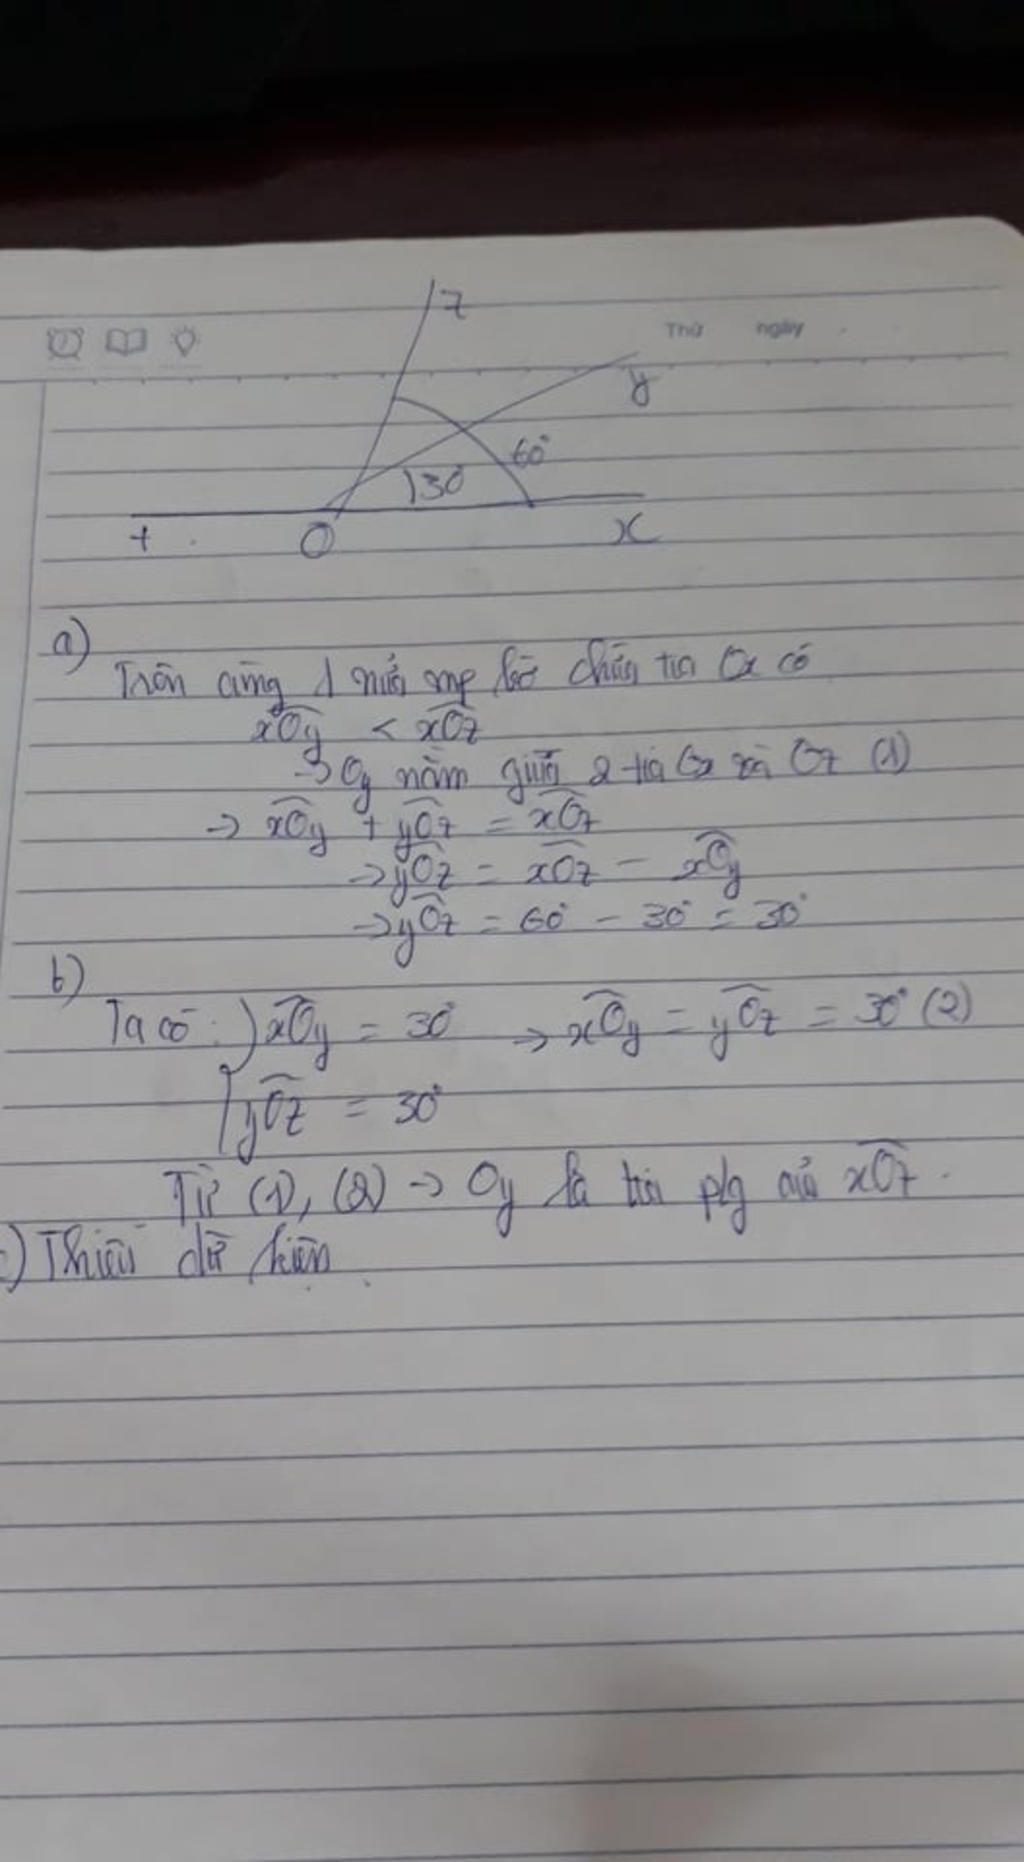 z
Thứ ngày
y
60°
30°
t O x
a)
Trên cùng 1 nửa mp bờ chứa tia Ox có
xOy < xOz
→ Oy nằm giữa 2 tia Ox và Oz (1)
→ xOy + yOz = xOz
→ yOz = xOz - xOy
→ yOz = 60° - 30° = 30°
b)
Ta có: xOy = 30° → xOy = yOz = 30° (2)
yOz = 30°
Từ (1), (2) → Oy là tia plg của xOz.
c) Thiếu dữ kiện.